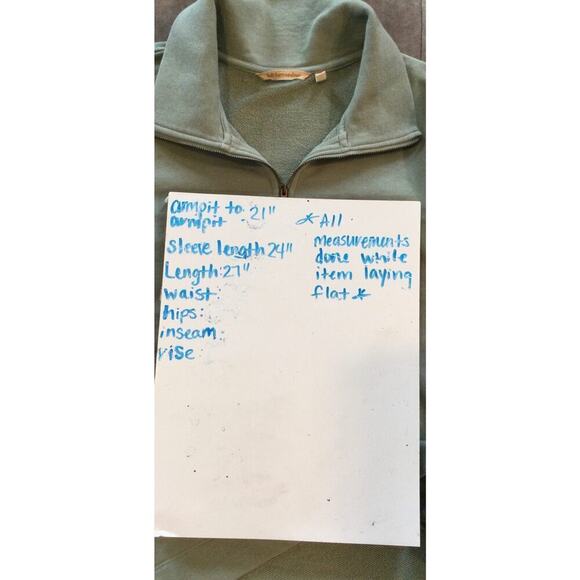 armpit to
armpit - 21"
sleeve length 24"
Length: 27"
waist:
hips:
inseam:
rise:
*All
measurements
done while
item laying
flat*